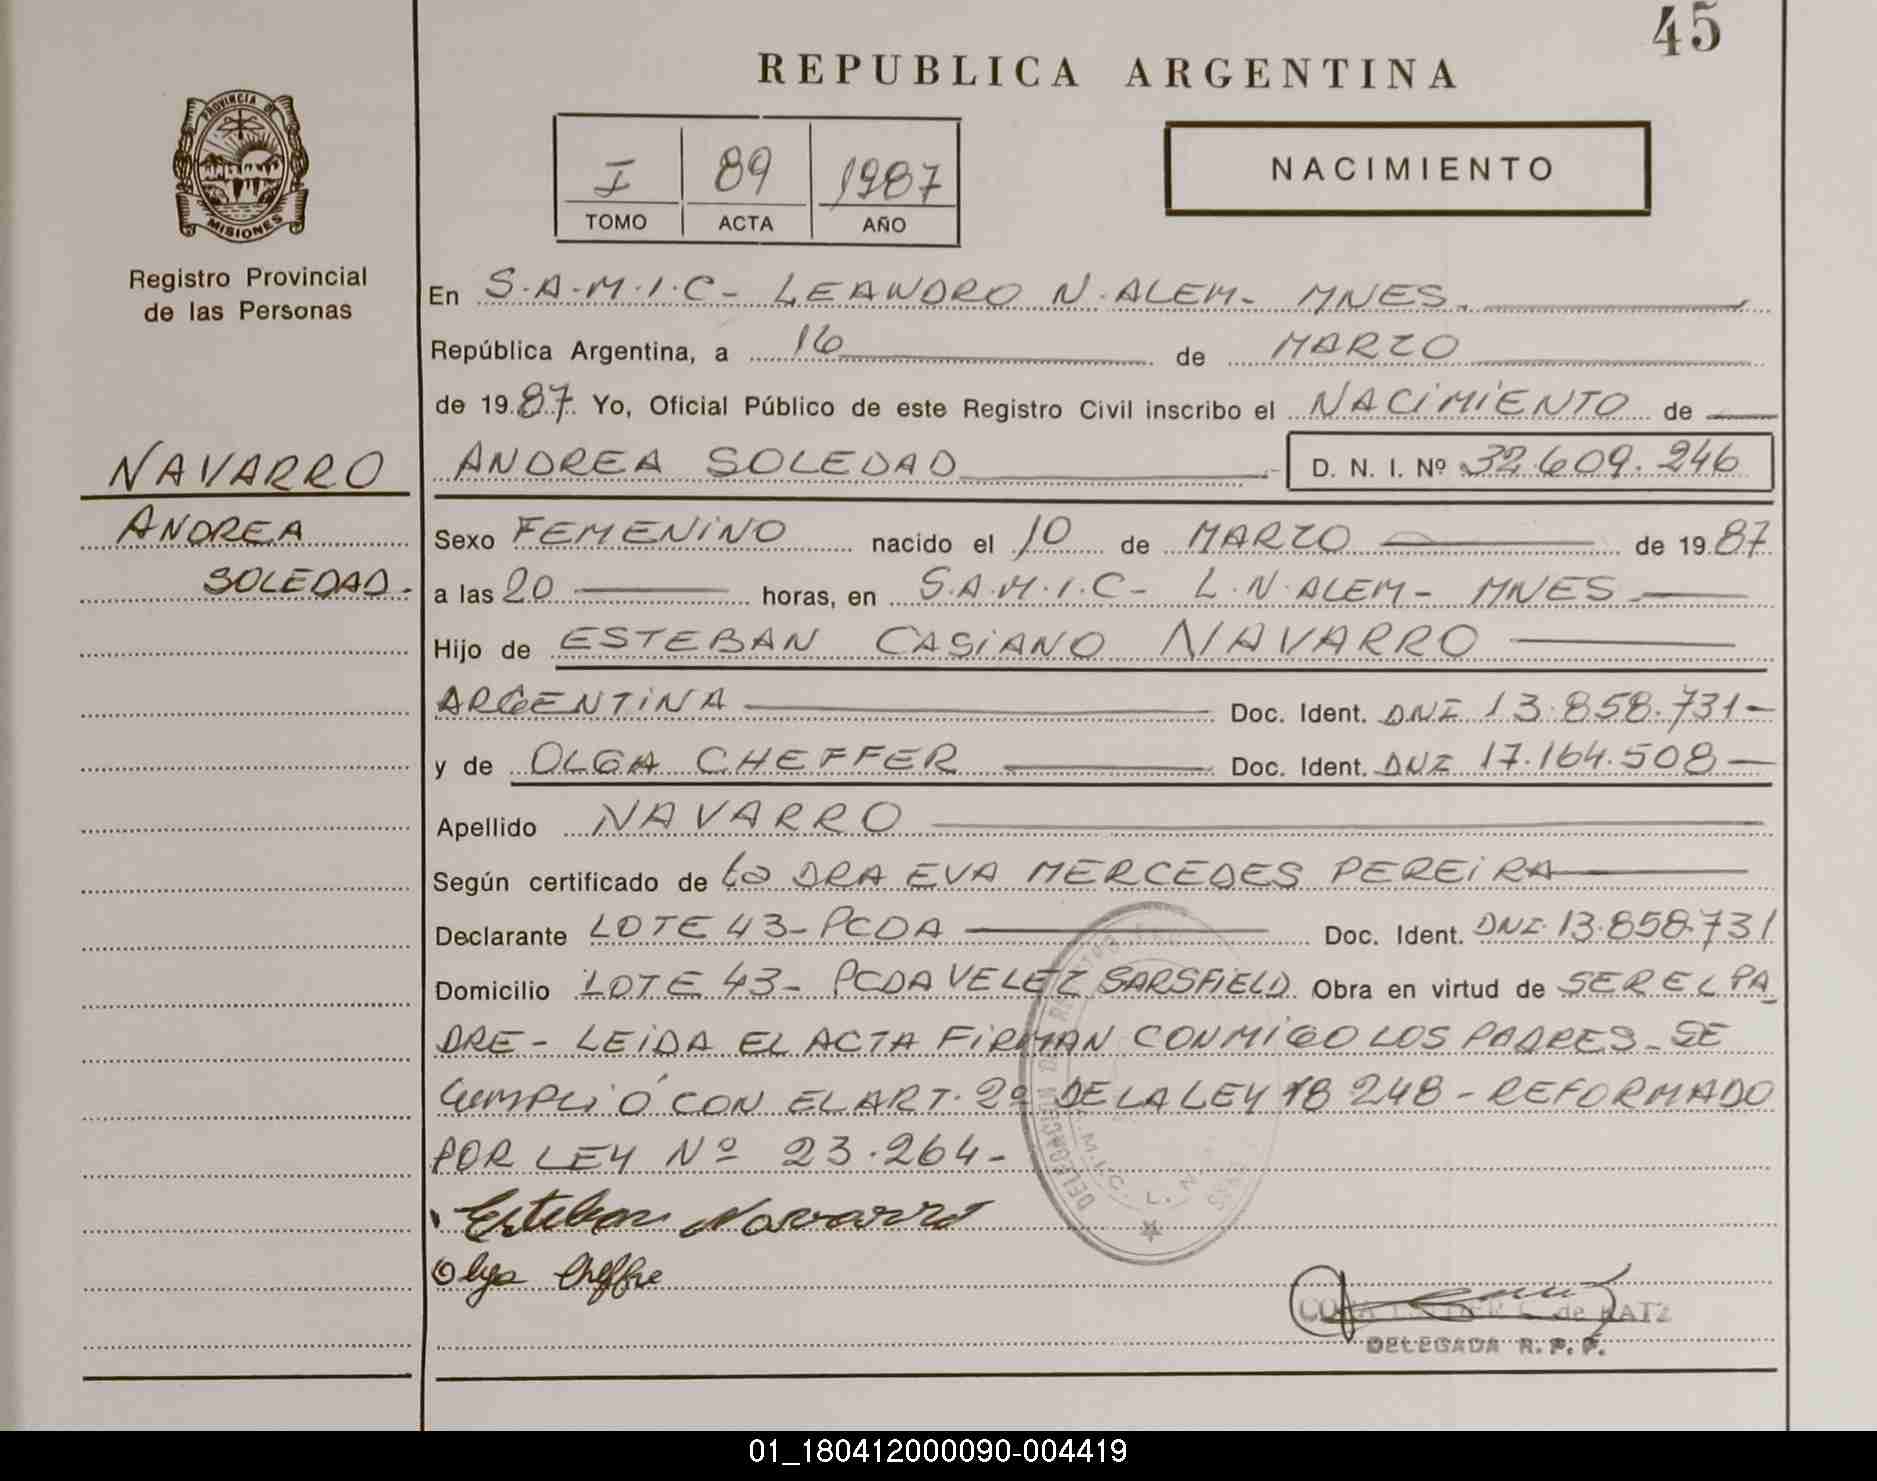 45
REPUBLICA ARGENTINA
PROVINCIA DE
MISIONES
Registro Provincial
de las Personas
I 89 1987
TOMO ACTA AÑO
NACIMIENTO
En S.A.M.I.C- LEANDRO N.ALEM- MNES.
República Argentina, a 16 de MARZO
de 1987. Yo, Oficial Público de este Registro Civil inscribo el NACIMIENTO de
NAVARRO
ANDREA SOLEDAD D. N. I. Nº 32.609.246
ANDREA
SOLEDAD.
Sexo FEMENINO nacido el 10 de MARZO de 1987
a las 20 horas, en S.A.M.I.C- L.N.ALEM- MNES
Hijo de ESTEBAN CASIANO NAVARRO
ARGENTINA Doc. Ident. DNI 13.858.731-
y de OLGA CHEFFER Doc. Ident. DNI 17.164.508-
Apellido NAVARRO
Según certificado de la DRA EVA MERCEDES PEREIRA
Declarante LOTE 43- PCDA Doc. Ident. DNI 13.858.731
Domicilio LOTE 43- PCDA VELEZ SARSFIELD Obra en virtud de SER EL PA
DRE- LEIDA EL ACTA FIRMAN CONMIGO LOS PADRES- SE
CUMPLIÓ CON EL ART. 2º DE LA LEY 18 248- REFORMADO
POR LEY Nº 23.264-
Esteban Navarro
Olga Cheffre
de KATZ
DELEGADA R. P. P.
01_180412000090-004419